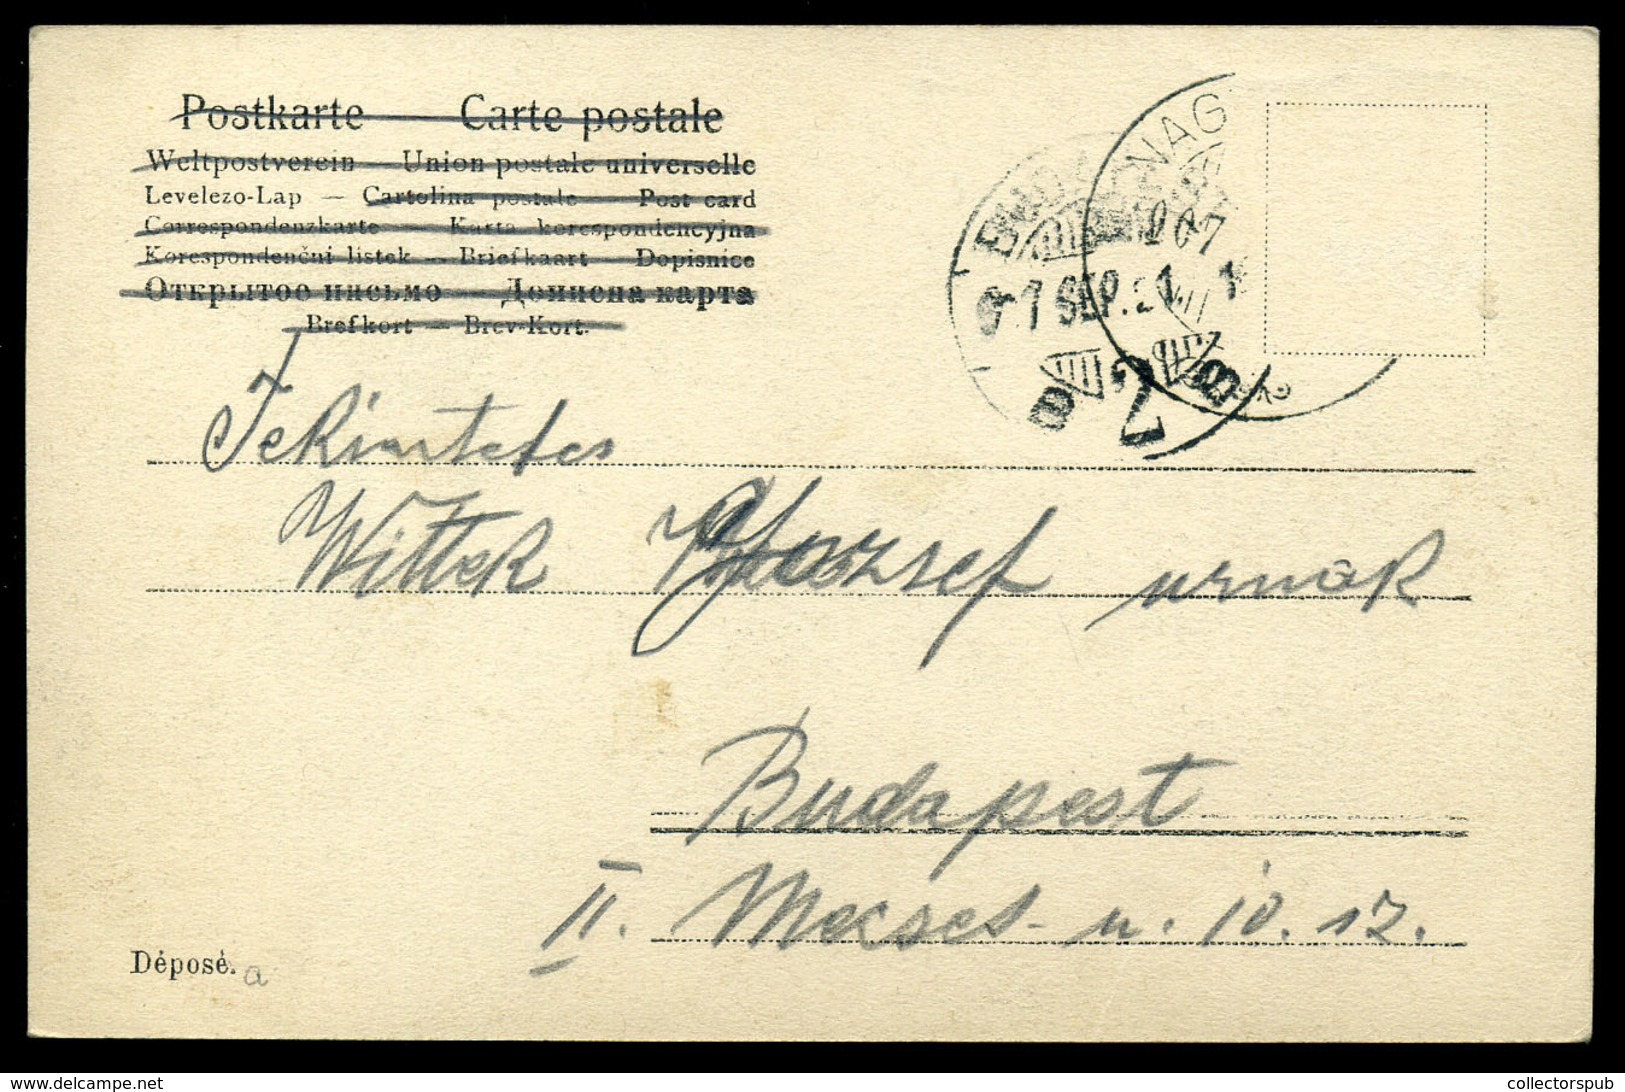 Postkarte — Carte postale
Weltpostverein — Union postale universelle
Levelezo-Lap — Cartolina postale — Post card
Correspondenzkarte — Karta korespondencyjna
Korespondenční listek — Briefkaart — Dopisnice
Открытое письмо — Дописна карта
Brefkort — Brev-Kort.
NAG
907
SEP. 21
Tekintetes
Wittek József urnak
Budapest
II. Mecset-u. 10. 12.
Déposé. a
collectorspub